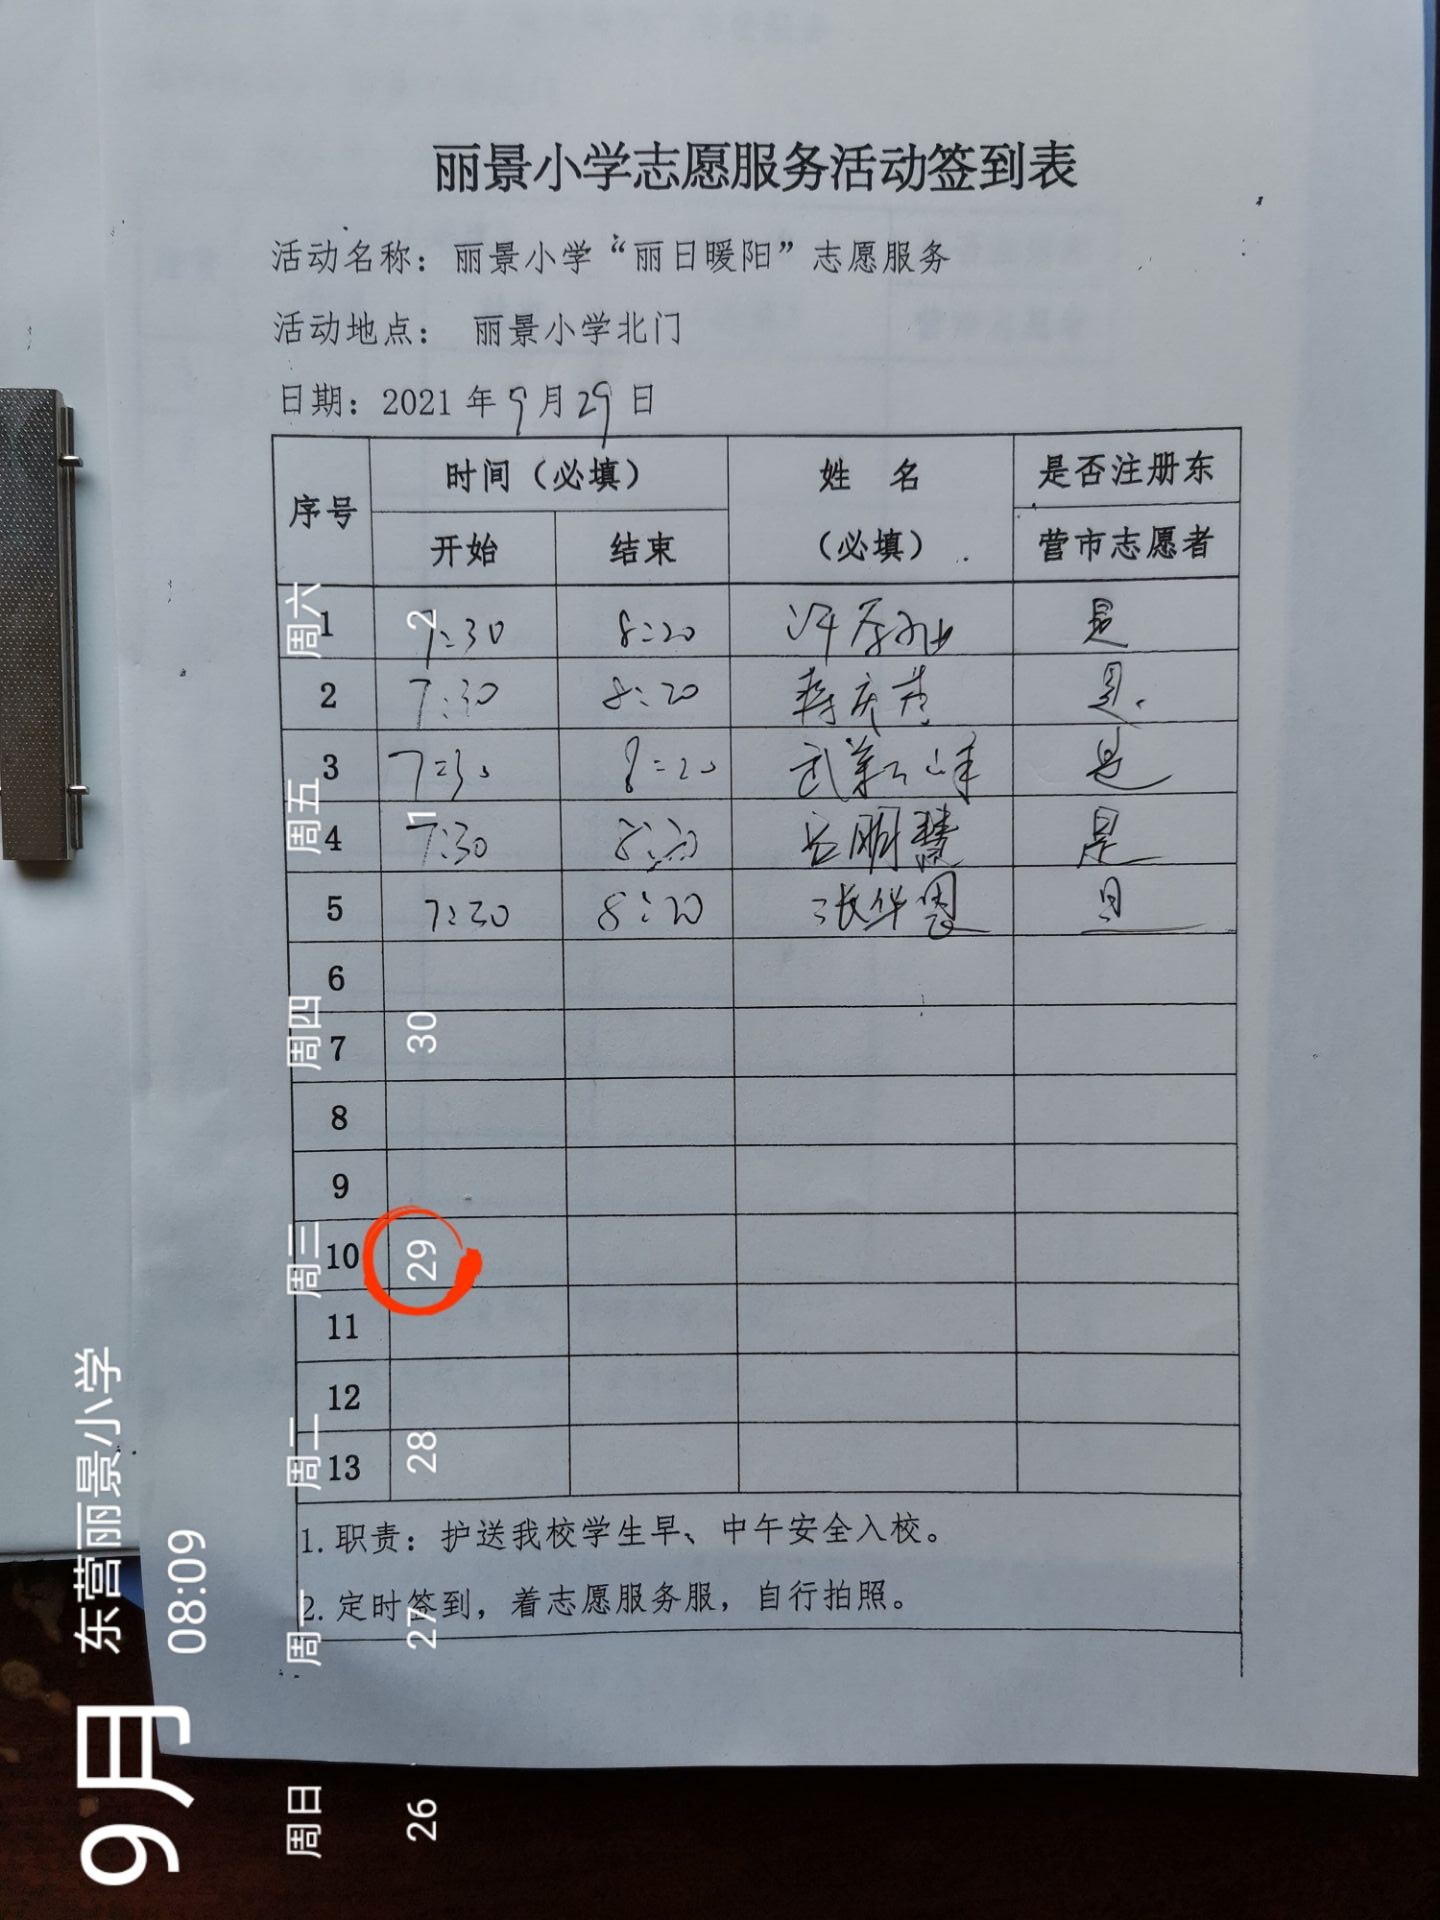 丽景小学志愿服务活动签到表
活动名称：丽景小学“丽日暖阳”志愿服务
活动地点： 丽景小学北门
日期：2021年9月29日
序号 时间（必填） 姓 名 是否注册东
开始 结束 （必填） 营市志愿者
1 7:30 8:20 是
2 7:30 8:20 是
3 7:30 8:20 是
4 7:30 8:20 是
5 7:30 8:20 张华 是
6
7
8
9
10
11
12
13
1. 职责：护送我校学生早、中午安全入校。
2. 定时签到，着志愿服务服，自行拍照。
9月
东营丽景小学
08:09
周日 周一 周二 周三 周四 周五 周六
26 27 28 29 30 1 2